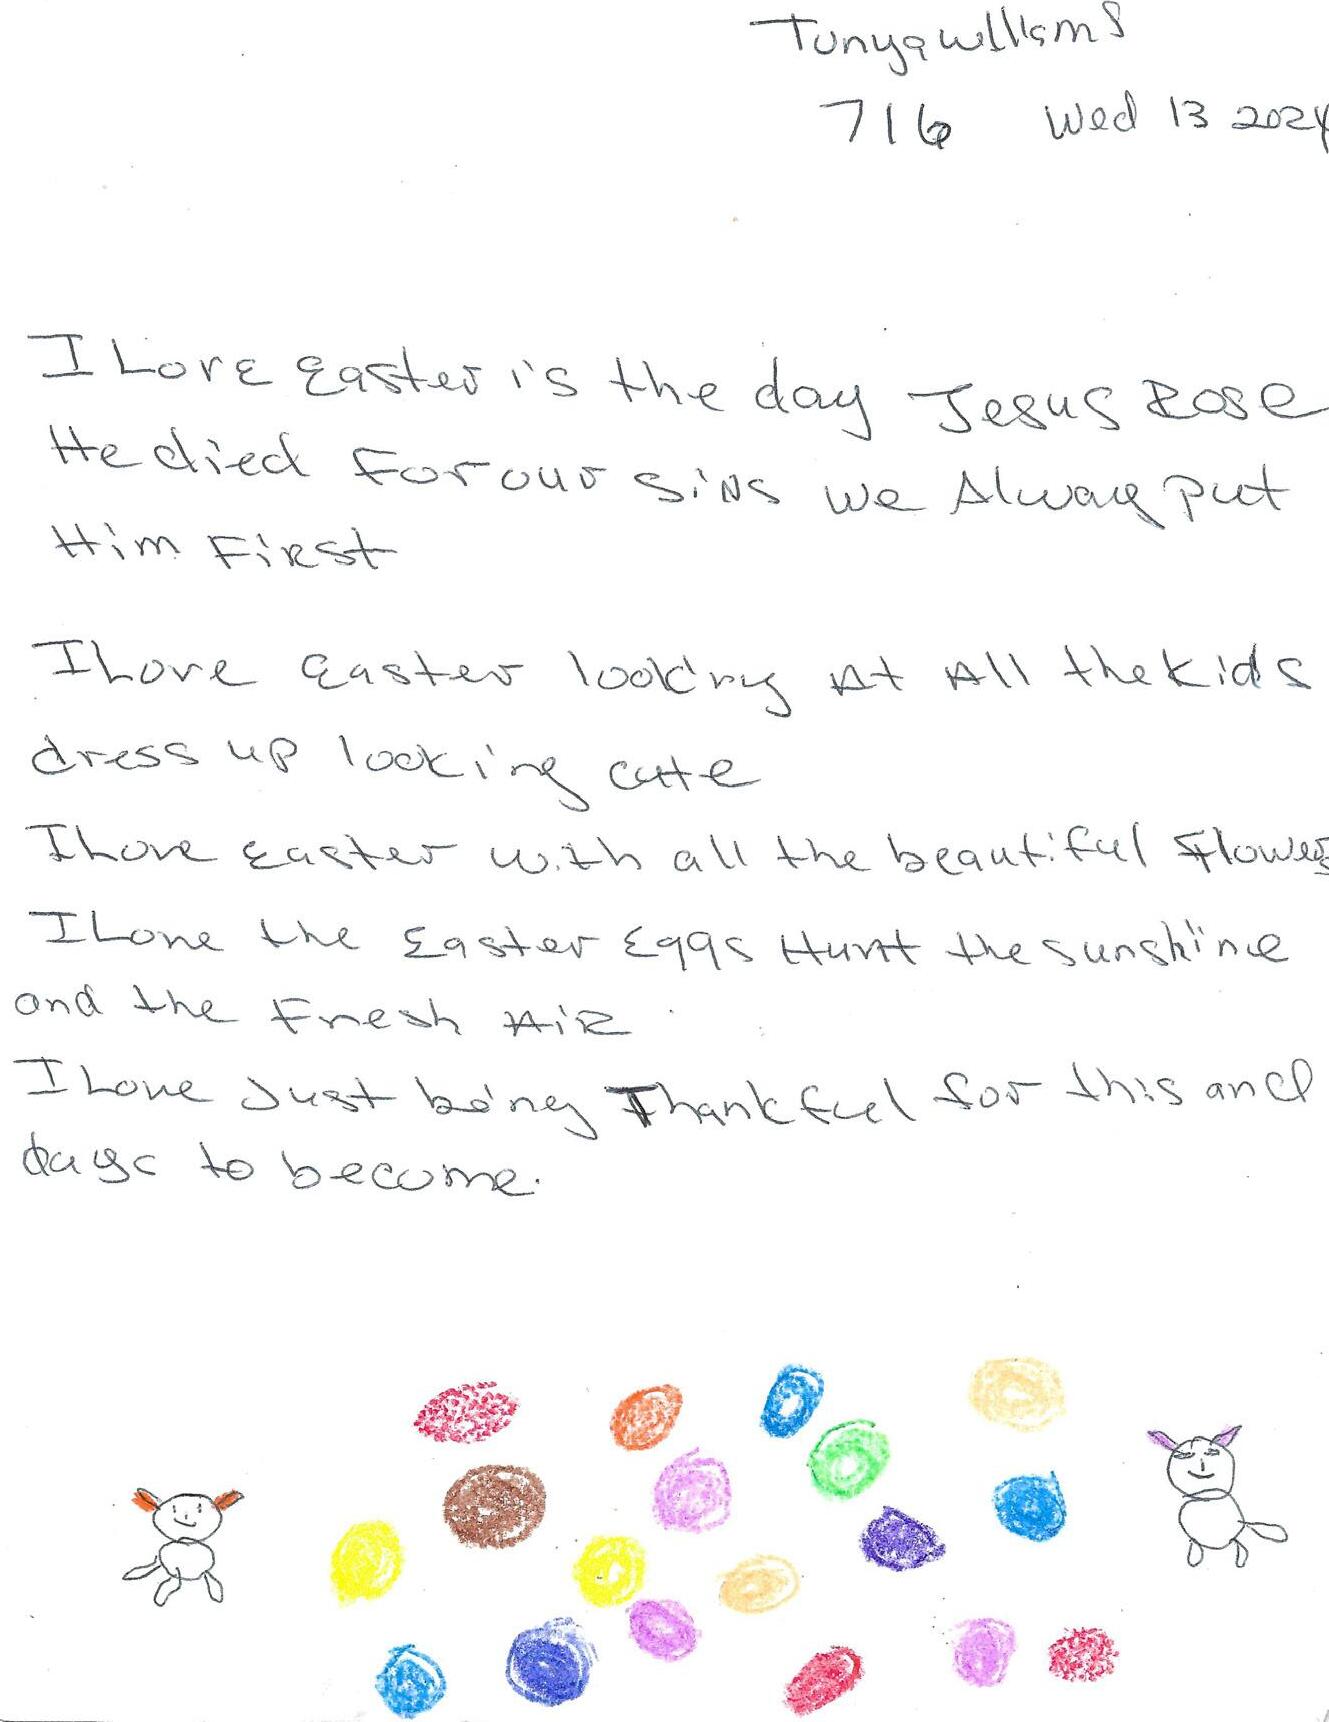 Tunya Williams
716 Wed 13 2024
I Love Easter is the day Jesus Rose
He died For our Sins we Alway put
Him First
I Love Easter looking At All the Kids
dress up looking cute
I Love Easter with all the beautiful Flowers
I Love the Easter Eggs Hunt the sunshine
and the Fresh AiR
I Love Just being Thankful for this and
days to become.